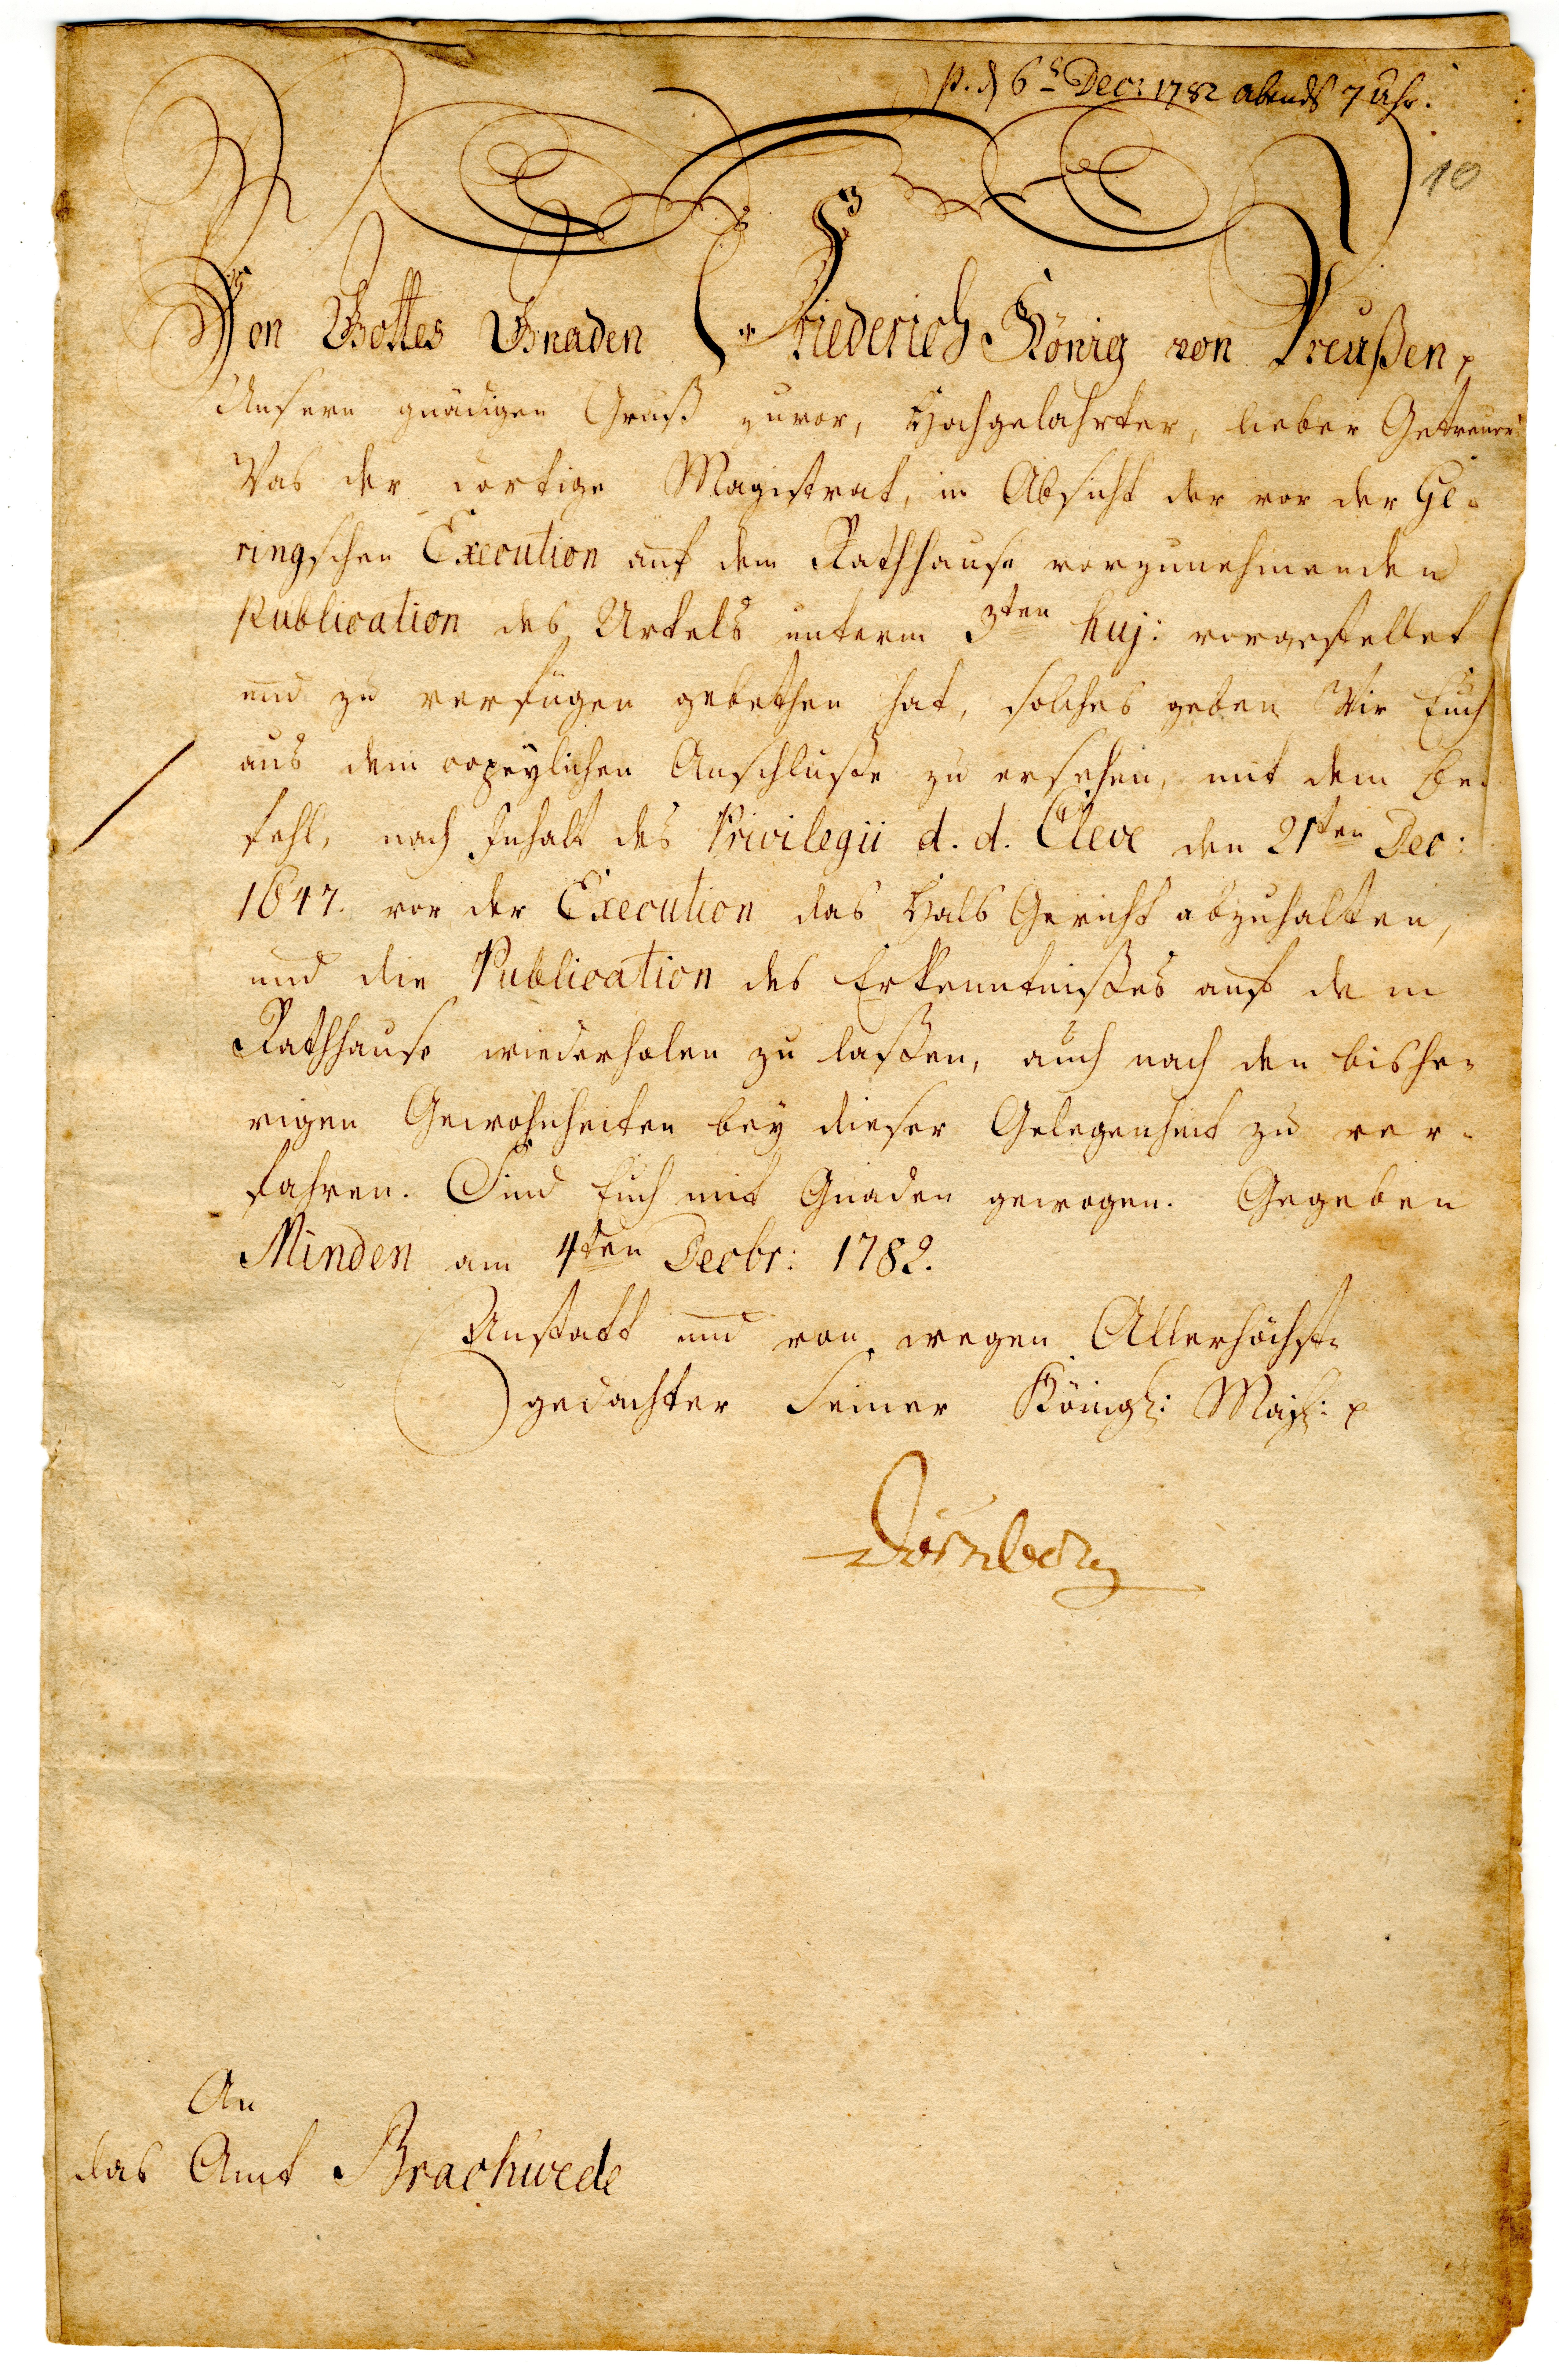 p. d 6t Decr 1782 abends 7 Uhr.
10
Von Gottes Gnaden Friederich König von Preußen p
Unsern gnädigen Gruß zuvor, Hochgelahrter, lieber Getreuer
Was der dortige Magistrat, in Absicht der vor der Ge-
ringschen Execution auf dem Rathhause vorzunehmenden
Publication des Urtels unterm 3ten huj: vorgestellet
und zu verfügen gebethen hat, solches geben Wir Euch
aus dem copeylichen Anschluße zu ersehen, mit dem Be-
fehl, nach Inhalt des Privilegii d. d. Cleve den 21ten Dec:
1647. vor der Execution das Hals Gericht abzuhalten,
und die Publication des Erkenntnißes auf dem
Rathhause wiederholen zu laßen, auch nach den bishe-
rigen Gewohnheiten bey dieser Gelegenheit zu ver-
fahren. Sind Euch mit Gnaden gewogen. Gegeben
Minden am 4ten Decbr: 1782.
Anstatt und von wegen Allerhöchst-
gedachter Seiner Königl: Maj: p
Dörnberg
An
das Amt Brackwede